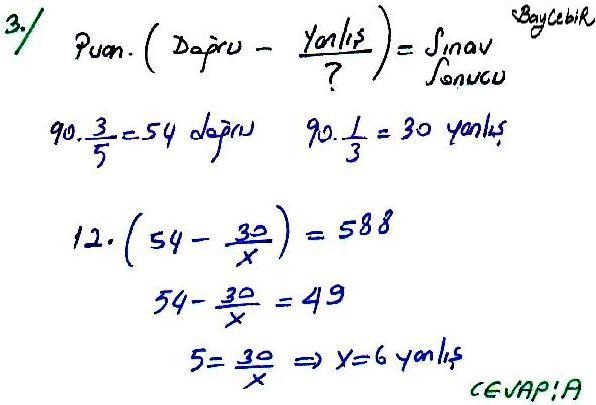 BayCebiR
3./ Puan. ( Doğru - Yanlış / ? ) = Sınav Sonucu
90. 3/5 = 54 doğru 90. 1/3 = 30 yanlış
12. ( 54 - 30/x ) = 588
54 - 30/x = 49
5 = 30/x ⇒ x = 6 yanlış
CEVAP: A